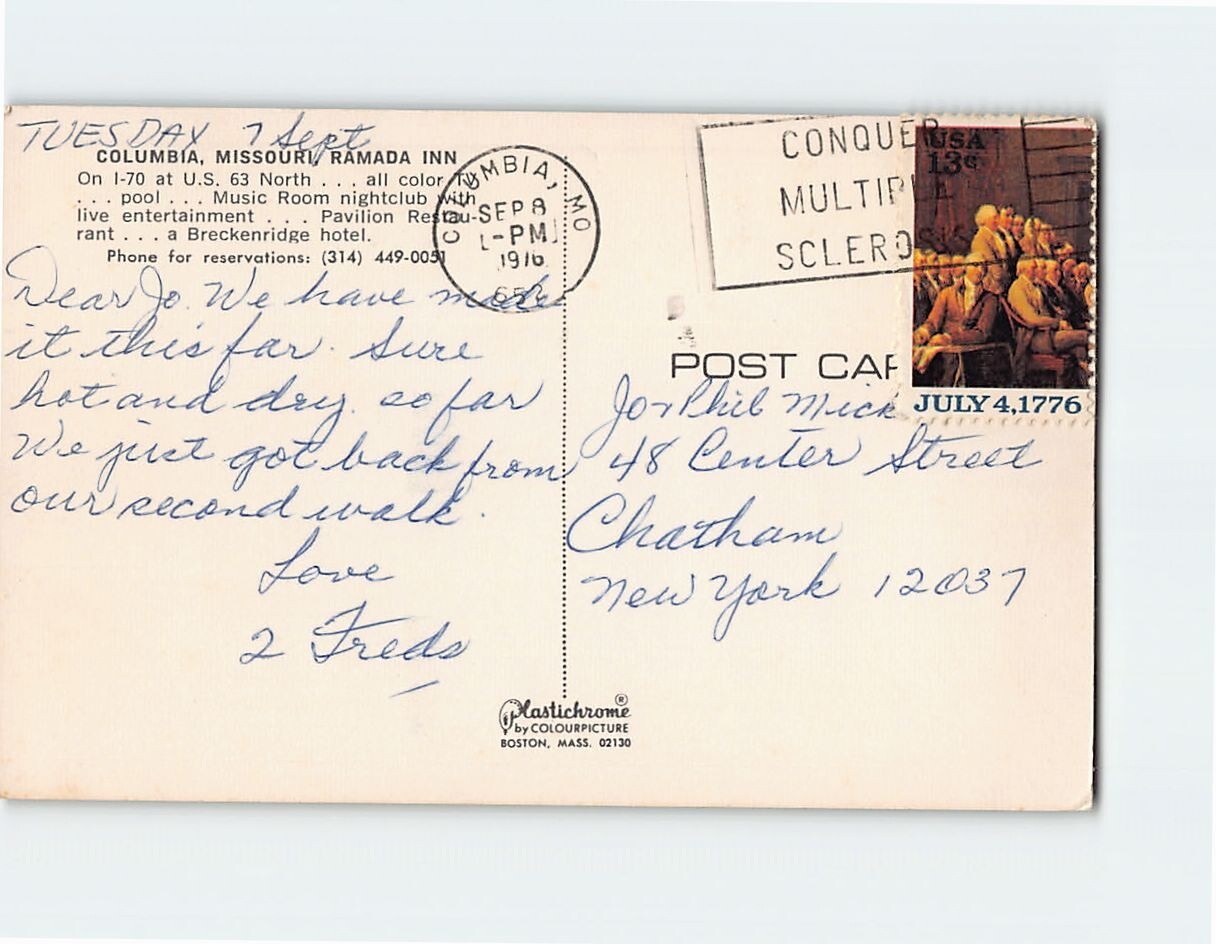 TUESDAY 7 Sept
COLUMBIA, MISSOURI, RAMADA INN
On I-70 at U.S. 63 North . . . all color TV
. . . pool . . . Music Room nightclub with
live entertainment . . . Pavilion Restau-
rant . . . a Breckenridge hotel.
Phone for reservations: (314) 449-0051
Dear Jo. We have made
it this far. Sure
hot and dry. so far
We just got back from
our second walk.
Love
2 Freds
COLUMBIA, MO
SEP 8
PM
1976
CONQUER
MULTIPLE
SCLEROSIS
USA
13c
JULY 4, 1776
POST CAR
Jo & Phil Mick
48 Center Street
Chatham
New York 12037
Plastichrome ®
by COLOURPICTURE
BOSTON, MASS. 02130